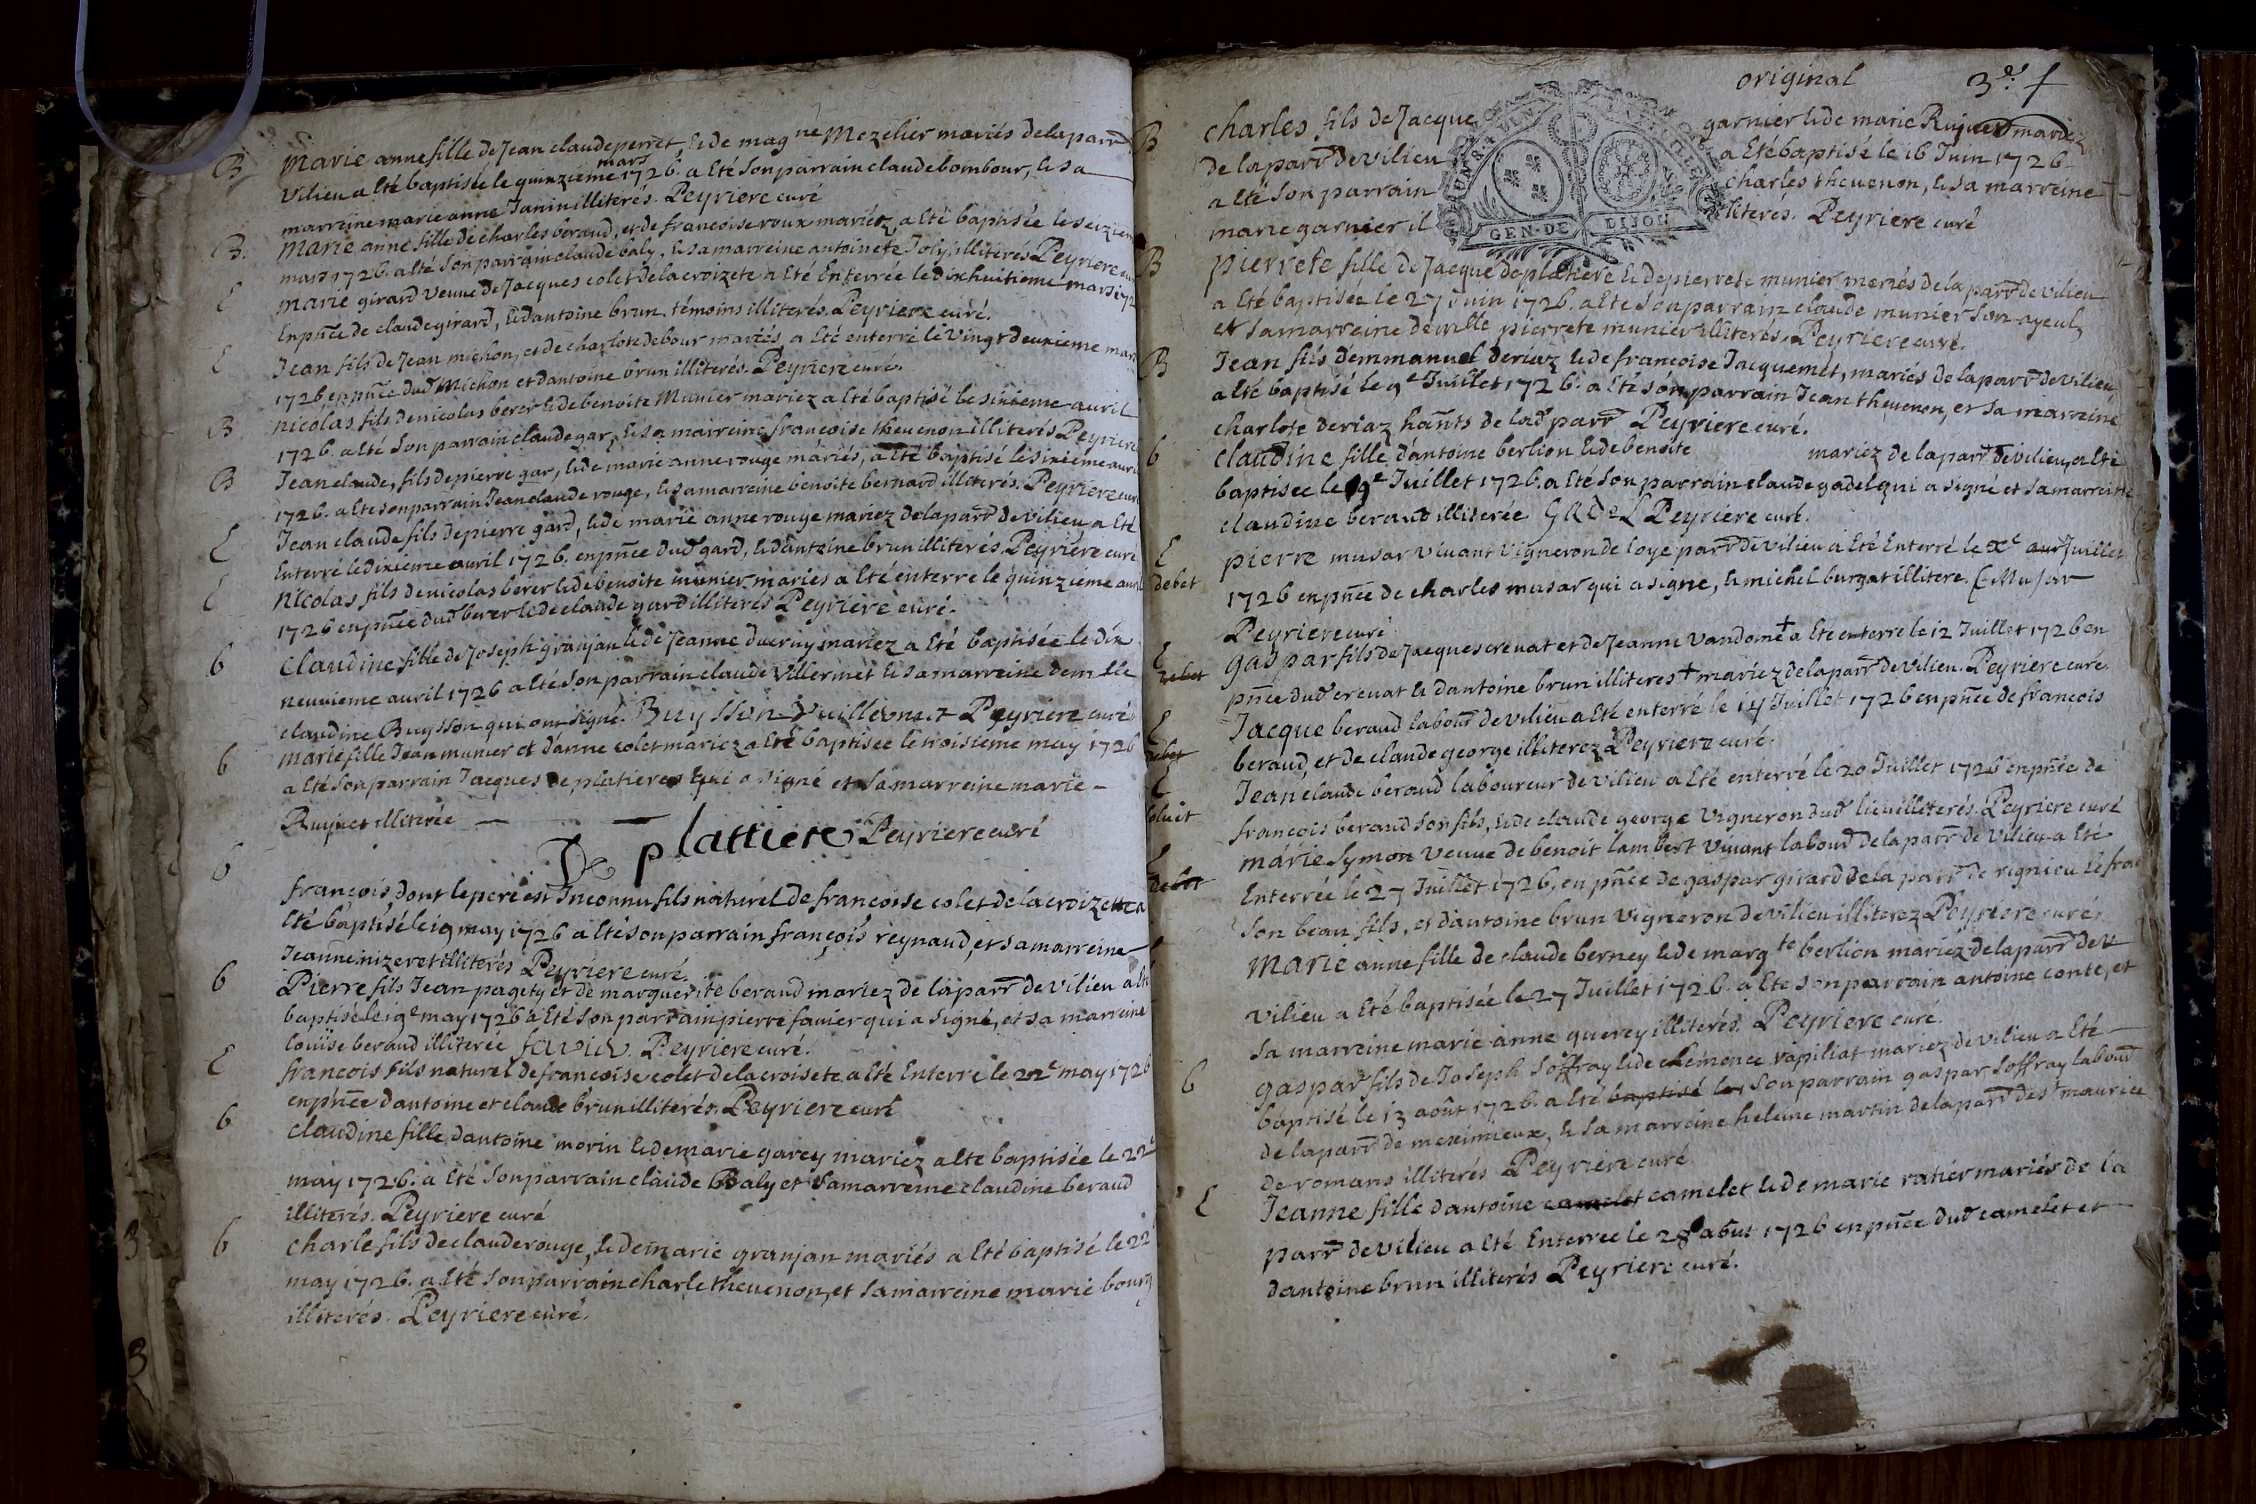 B Marie anne fille de Jean claude perret & de magne Mezelier mariés de la parr
Vilieu a Eté baptisée le quinzieme mars 1726. a Eté Son parrain claude bombour, & Sa
marreine marie anne Janin illiterés. Peyriere curé
B. Marie anne fille de charles beraud, et de francoise roux mariéz a Eté baptisée le seizieme
mars 1726. a Eté Son parrain claude baly, & Sa marreine antoinete Joly illiterés Peyriere curé
E Marie girard Veuve de Jacques colet de la croizete a Eté Enterrée le dixhuitieme mars 172
En pnce de claude girard, & d'antoine brun témoins illiterés. Peyriere curé.
E Jean fils de Jean michon, et de charlote debour mariés a Eté enterré le Vingt deuxieme mars
1726. en pnce dud Michon et d'antoine brun illiterés. Peyriere curé.
B nicolas fils de nicolas berer & de benoite Munier mariez a Eté baptisé le sixieme avril
1726. a Eté Son parrain claude gar, & Sa marreine francoise thevenon illiterés Peyriere
B Jean claude, fils de pierre gar, & de marie anne rouge mariés, a Eté baptisé le sixieme avril
1726. a Eté son parrain Jean claude rouge, & Sa marreine benoite bernard illiterés. Peyriere curé
E Jean claude fils de pierre gard, & de marie anne rouge mariez de la parr de vilieu a Eté
Enterré le dixieme avril 1726. en pnce dud gard, & d'antoine brun illiterés Peyriere curé
E Nicolas fils de nicolas berer & de benoite munier mariés a Eté enterré le quinzieme avril
1726 en pnce dud berer & de claude gard illiterés Peyriere curé.
b Claudine fille de Joseph granjan & de Jeanne ducruy mariez a Eté baptisée le dix
neuvieme avril 1726 a Eté Son parrain claude Villermet & Sa marreine demlle
claudine Buysson qui ont signé. Buysson Vuillermet Peyriere curé
b marie fille Jean munier et d'anne colet mariez a Eté baptisée le troisieme may 1726
a Eté Son parrain Jacques de platieres qui a signé et Sa marreine marie -
Rujuet illiterée —
De plattiere Peyriere curé
b francois, dont le pere est Inconnu fils naturel de francoise colet de la croizette a
Eté baptisé le 19 may 1726 a Eté son parrain françois reynaud, et sa marreine
Jeanne nizeret illiterés Peyriere curé.
b Pierre fils Jean pagety et de marguerite beraud mariez de la parr de vilieu a Eté
baptisé le 19e may 1726 a Eté Son parrain pierre favier qui a signé, et sa marreine
louïse beraud illiterée favier. Peyriere curé.
E francois fils naturel de francoise colet de la croisete a Eté Enterré le 22e may 1726
en pnce d'antoine et claude brun illiterés. Peyriere curé
b Claudine fille d'antoine morin & de marie garey mariez a Eté baptisée le 22e
may 1726. a Eté Son parrain claude Baly et Sa marreine claudine beraud
illiterés. Peyriere curé
b Charle fils de claude rouge, & de marie granjan mariés a Eté baptisé le 22
may 1726. a Eté Son parrain charle thevenon, et Sa marreine marie bourg
illiterés. Peyriere curé.
original 3e. f
B Charles fils de Jacque garnier & de marie Rujuet mariez
de la parr de Vilieu a Eté baptisé le 16 Juin 1726
a Eté Son parrain charles thevenon, & Sa marreine
marie garnier il literés. Peyriere curé
GEN. DE DIJON
B Pierrete fille de Jacque de platiere & de pierrete munier mariés de la parr de vilieu
a Eté baptisée le 27 Juin 1726. a Eté Son parrain claude munier Son ayeul,
et Sa marreine demlle pierrete munier illiterés. Peyriere curé.
B Jean fils d'emmanuel deriaz & de francoise Jacquemet, mariés de la parr de vilieu
a Eté baptisé le 9e Juillet 1726. a Eté son parrain Jean thevenon, et sa marreine
charlote deriaz hañts de lad parr Peyriere curé.
b Claudine fille d'antoine berlion & de benoite mariez de la parr de vilieu, a Eté
baptisee le 9e Juillet 1726. a Eté Son parrain claude gadel qui a signé et Sa marreine
claudine beraud illiterée GADEL Peyriere curé.
E debet pierre musar vivant Vigneron de loye parr de vilieu a Eté Enterré le Xe avr Juillet
1726 en pnce de charles musar qui a signé, & michel burgat illitere. C Musar
Peyriere curé
E debet gaspar fils de Jacques crevat et de Jeanne Vandome + a Eté enterré le 12 Juillet 1726 en
pnce dud crevat & d'antoine brun illiteres + mariez de la parr de vilieu. Peyriere curé
E debet Jacque beraud labour de vilieu a Eté enterré le 14 Juillet 1726 en pnce de francois
beraud, et de claude george illiterez Peyriere curé.
E soluit Jean claude beraud laboureur de vilieu a Eté enterré le 20 Juillet 1726 en pnce de
francois beraud Son fils, & de claude george Vigneron dud lieu illiterés. Peyriere curé
E debet marie Symon Veuve de benoit lambert Vivant labour de la parr de Vilieu a Eté
Enterrée le 27 Juillet 1726. en pnce de gaspar girard de la parr de rignieu le fran
Son beau fils, et d'antoine brun vigneron de vilieu illiterez Peyriere curé
Marie anne fille de claude berney & de margte berlion mariez de la parr de
Vilieu a Eté baptisée le 27 Juillet 1726. a Eté Son parrain antoine conte, et
Sa marreine marie anne querey illiterés. Peyriere curé.
b gaspar fils de Joseph Soffray & de clemence rapiliat mariez de vilieu a Eté
baptisé le 13 août 1726. a Eté baptisé le Son parrain gaspar Soffray labour
de la parr de meximieux, & Sa marreine helene martin de la parr de st maurice
de romans illiterés Peyriere curé
E Jeanne fille d'antoine camelot camelet & de marie ratier mariés de la
parr de Vilieu a Eté Enterrée le 28 août 1726 en pnce dud camelet et
d'antoine brun illiterés Peyriere curé.